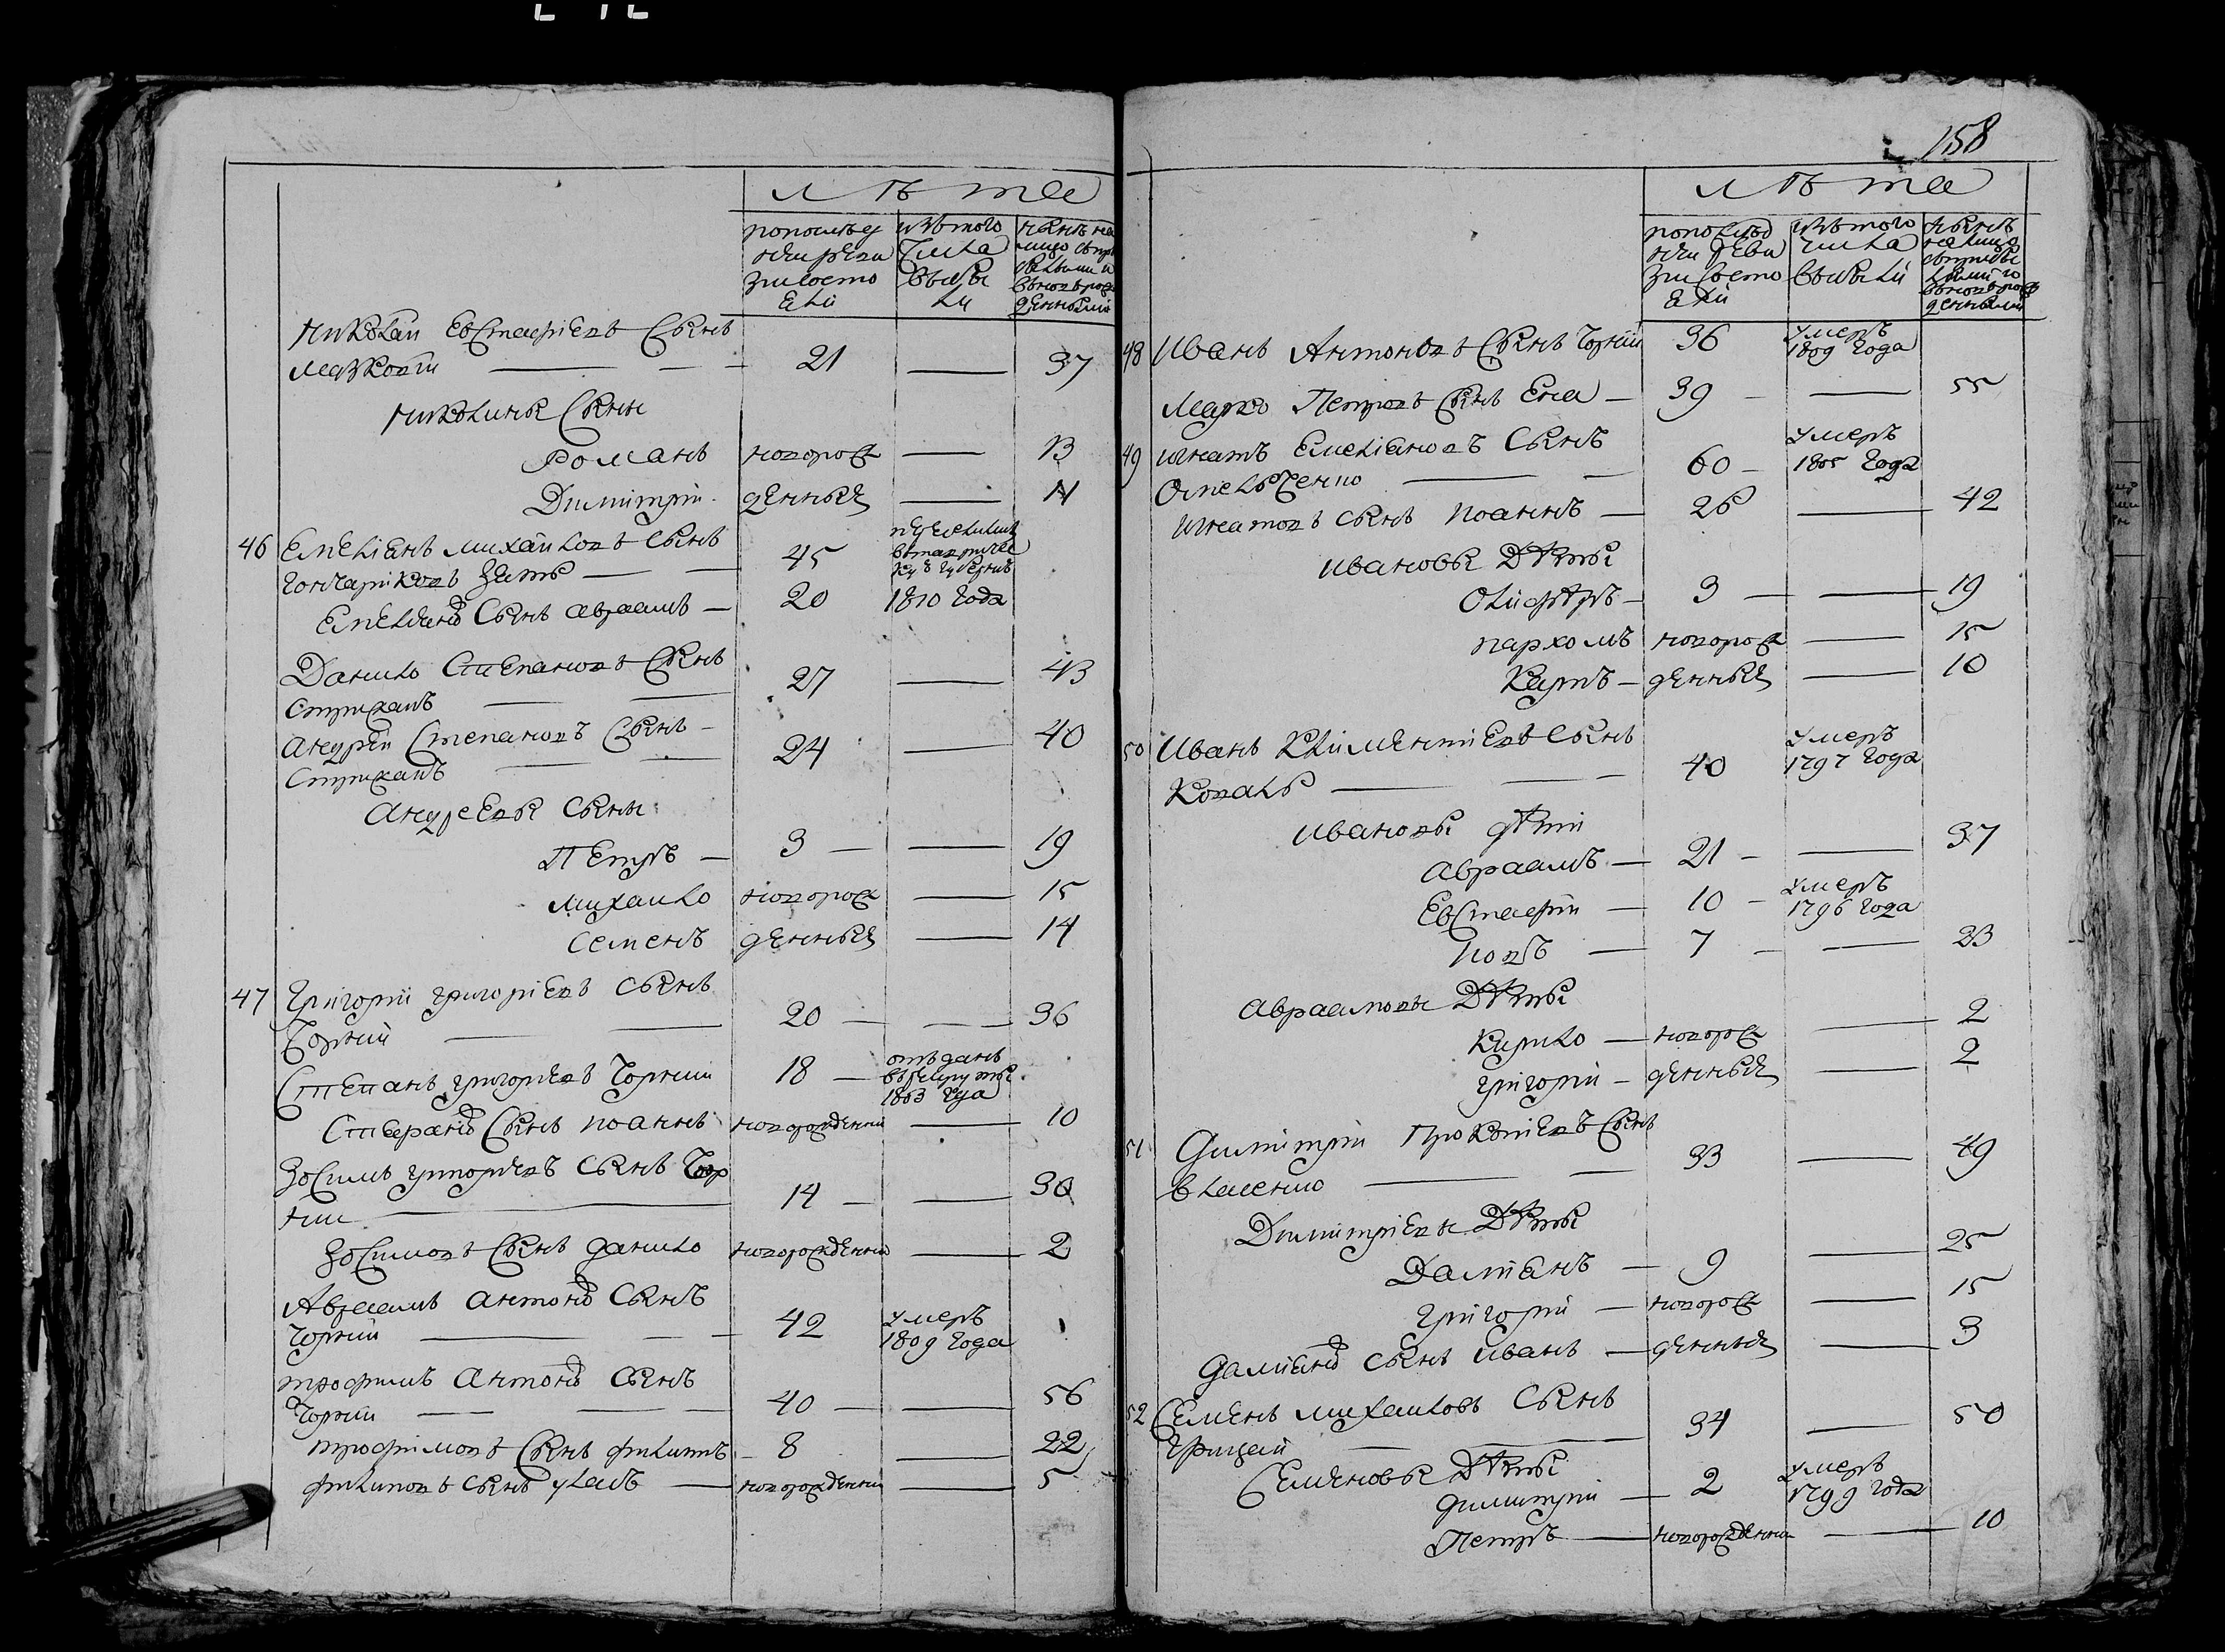 158
лѣта
попослѣд
ней реви
зіи состо
яли
изъ того
числа
выбы
ли
нынѣ на
лицо съ при
былыми и
вновь рож
денными
Николай Евстафіевъ сынъ
Мазковый — 21 — 37
Николины сыны
Романъ новорож — 13
Димитрій денныя — 11
46 Емеліанъ Михайловъ сынъ
Гончариковъ зять — 45
Емеліяновъ сынъ Авраамъ — 20
1810 года
Данило Степановъ сынъ
Стриханъ — 27 — 43
Андрей Степановъ сынъ
Стриханъ — 24 — 40
Андреевы сыны
Петръ — 3 — 19
Михайло новорож — 15
Семенъ денныя — 14
47 Григорій Григоріевъ сынъ
Чорный — 20 — 36
Степанъ Григоріевъ Чорный 18 —
отъданъ
въ рекруты
1803 года
Степановъ сынъ Иоаннъ новорожденный — 10
Зосимъ Григоріевъ сынъ Чор
ный — 14 — 30
Зосимовъ сынъ Данило новорожденный — 2
Авраамъ Антоновъ сынъ
Чорный — 42
умеръ
1809 года
Трофимъ Антоновъ сынъ
Чорный — 40 — 56
Трофимовъ сынъ Филиппъ — 8 — 22
Филиповъ сынъ Улась — новорожденный — 5
лѣта
попослѣд
ней реви
зіи состо
яли
изъ того
числа
выбыли
нынѣ
на лицо
съ прибы
лыми и
вновь рож
денными
48 Иванъ Антоновъ сынъ Чорный 36
умеръ
1809 года
Марко Петровъ сынъ Ена — 39 — 55
49 Игнатъ Емеліановъ сынъ
Омельченко — 60 —
умеръ
1805 года
Игнатовъ сынъ Иоаннъ — 26 — 42
Ивановы дѣти
Олиферъ — 3 — 19
Пархомъ новорож — 15
Карпъ — денныя — 10
50 Иванъ Климентіевъ сынъ
Коваль — 40
умеръ
1797 года
Ивановы дѣти
Авраамъ — 21 — 37
Евстафій — 10 —
умеръ
1796 года
Иовъ — 7 — 23
Авраамовы дѣти
Кирило — новорож — 2
Григорій — денныя — 2
51 Димитрій Прокопіевъ сынъ
Власенко — 33 — 49
Димитріевы дѣти
Даміанъ — 9 — 25
Григорій — новорож — 15
Даміановъ сынъ Иванъ — денныя — 3
52 Семенъ Михайловъ сынъ
Грицай — 34 — 50
Семеновы дѣти
Димитрій — 2
умеръ
1799 года
Петръ — новорожденный — 10